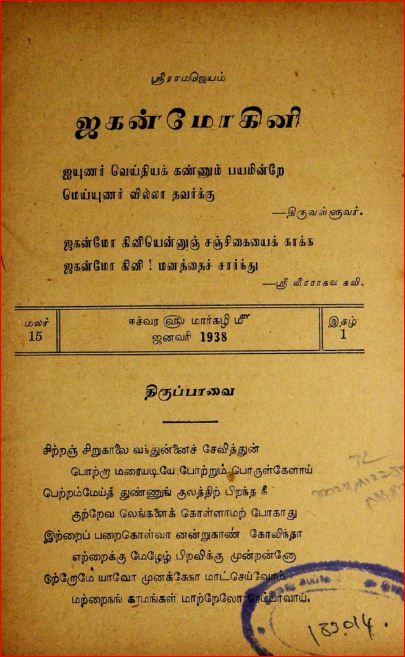 ஸ்ரீராமஜெயம்
ஜகன்மோகினி
ஐயுணர் வெய்தியக் கண்ணும் பயமின்றே
மெய்யுணர் வில்லா தவர்க்கு
—திருவள்ளுவர்.
ஜகன்மோ கினியென்னுஞ் சஞ்சிகையைக் காக்க
ஜகன்மோ கினி ! மனத்தைச் சார்ந்து
—ஸ்ரீ வீரராகவ கவி.
மலர் 15
ஈச்வர ௵ மார்கழி ௴
ஜனவரி 1938
இதழ் 1
திருப்பாவை
சிற்றஞ் சிறுகாலை வந்துன்னைச் சேவித்துன்
பொற்றா மரையடியே போற்றும் பொருள்கேளாய்
பெற்றம்மேய்த் துண்ணுங் குலத்திற் பிறந்த நீ
குற்றேவ லெங்களைக் கொள்ளாமற் போகாது
இற்றைப் பறைகொள்வா னன்றுகாண் கோவிந்தா
எற்றைக்கு மேழேழ் பிறவிக்கு முன்றன்னோ
டுற்றோமே யாவோ முனக்கேநா மாட்செய்வோம்
மற்றைநங் காமங்கள் மாற்றேலோ ரெம்பாவாய்.
139014.